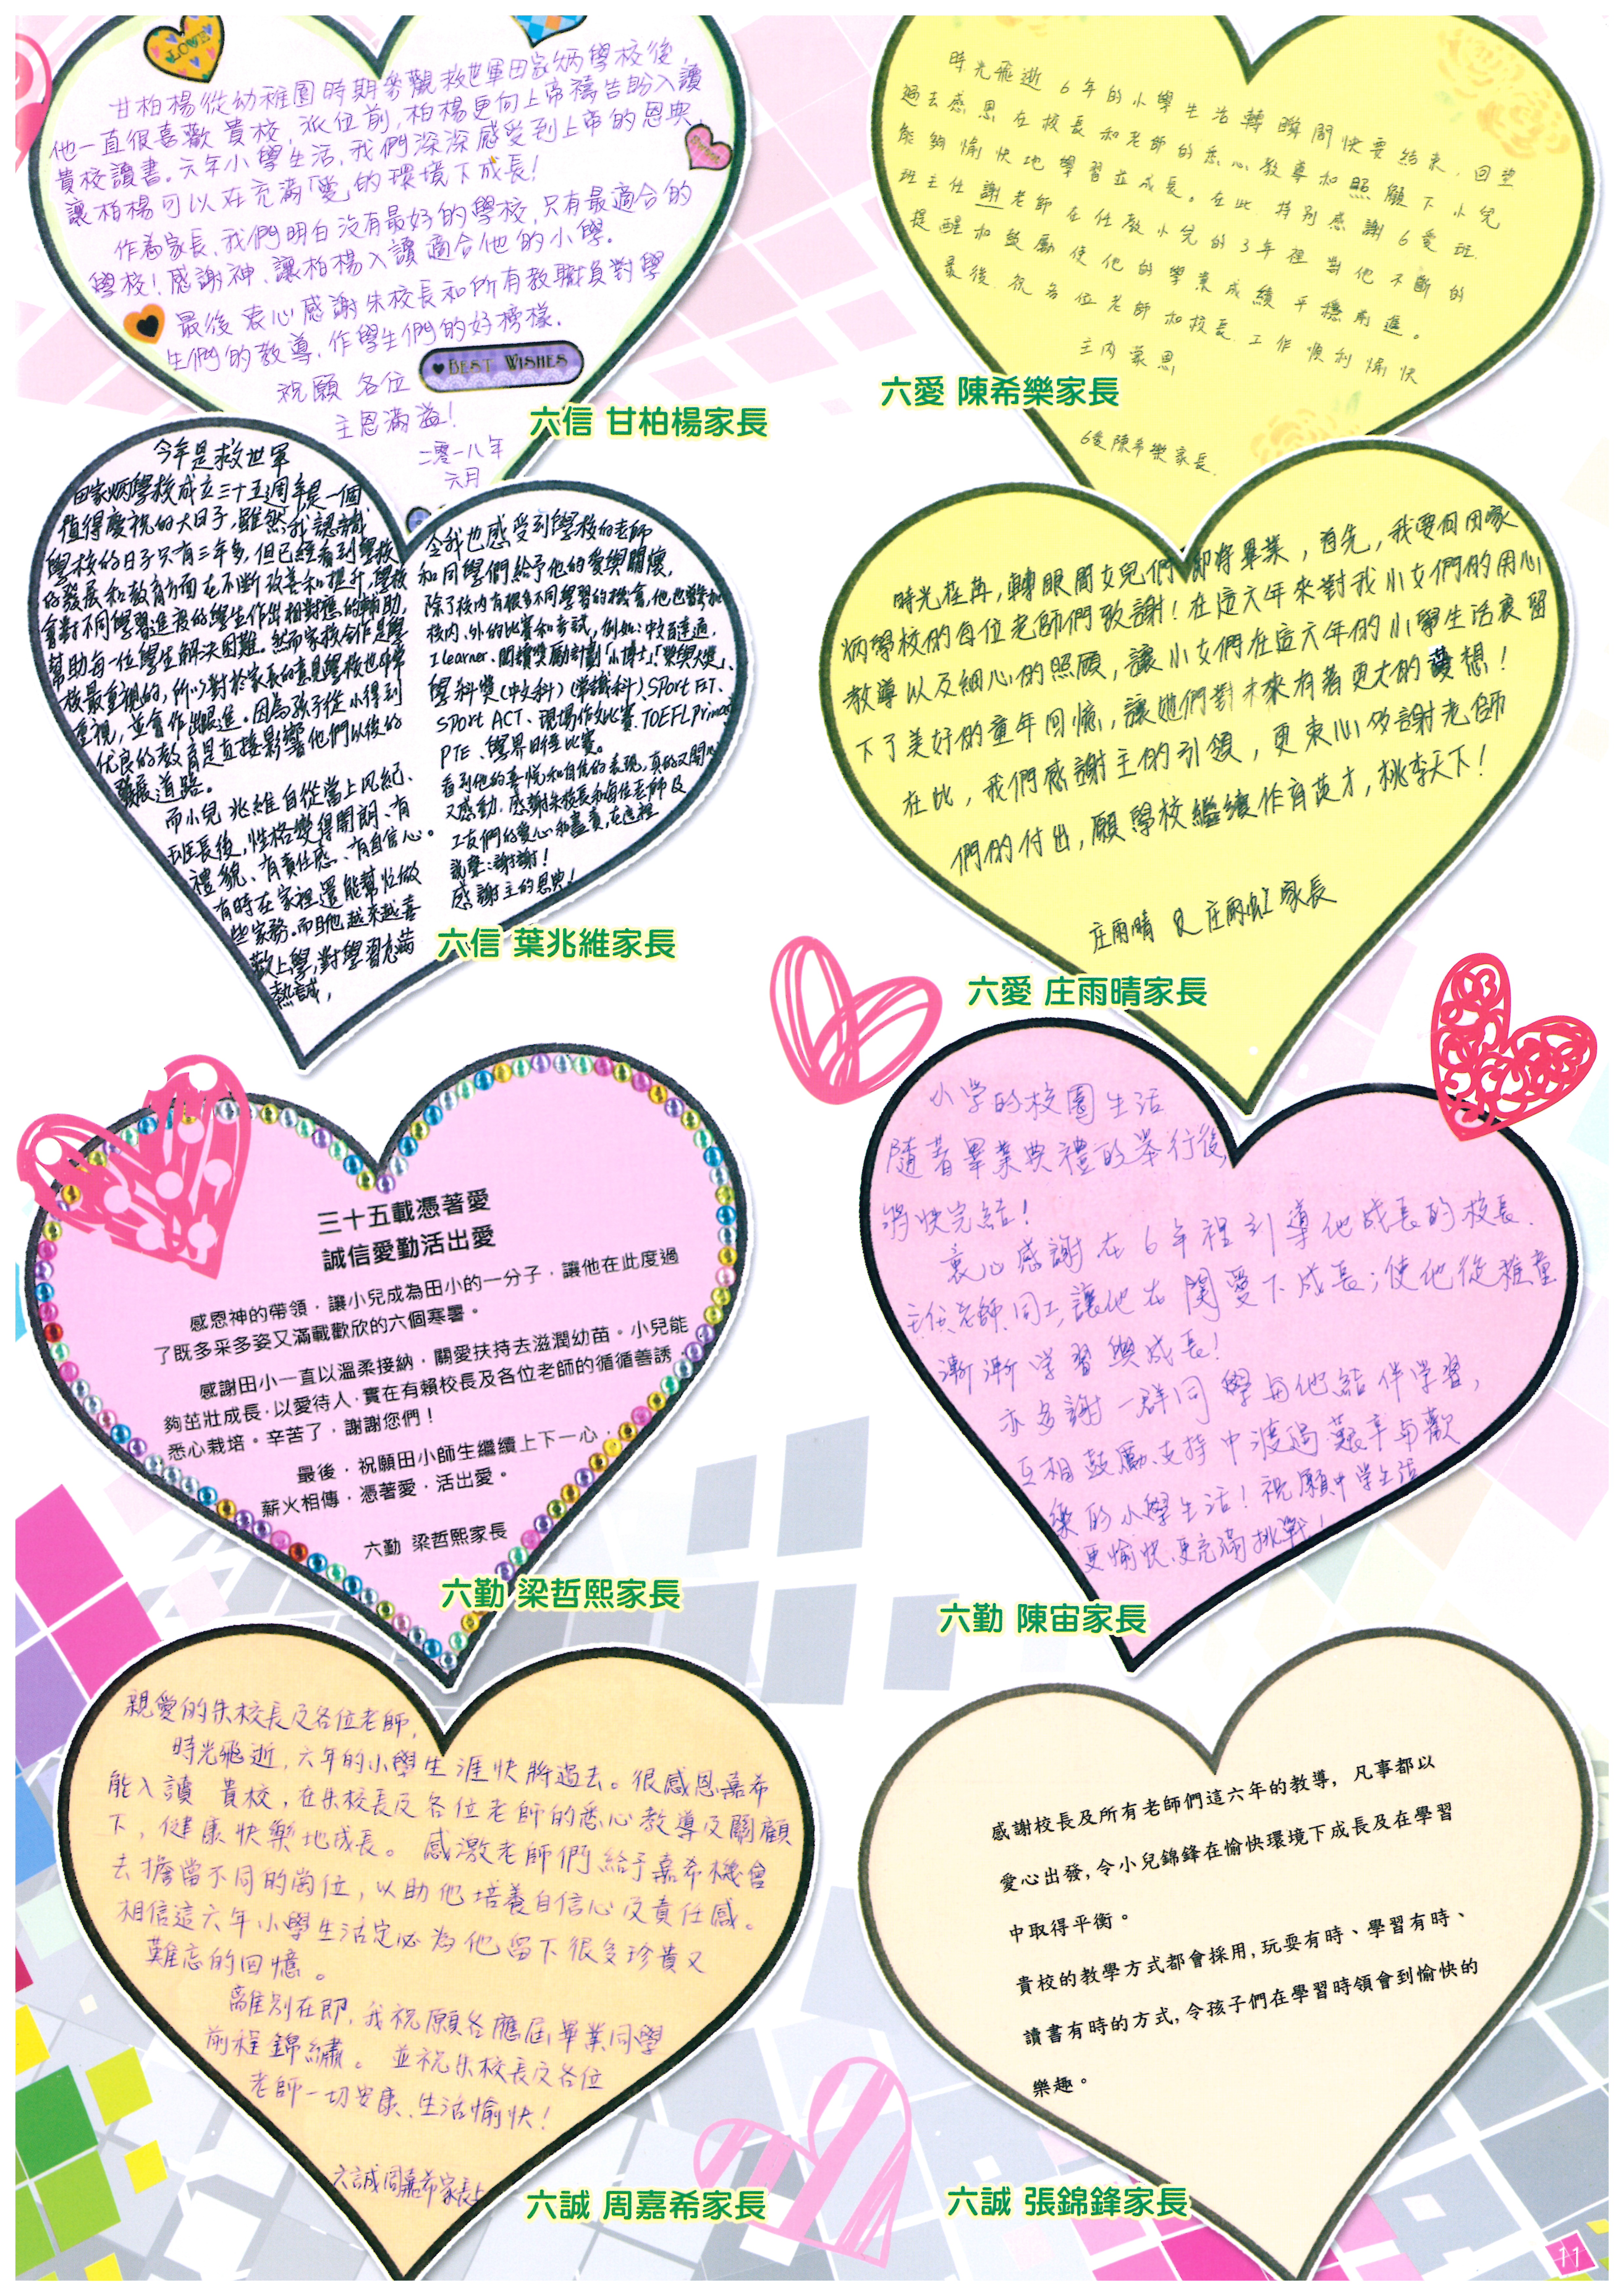 LOVE
甘柏楊從幼稚園時期參觀救世軍田家炳學校後,
他一直很喜歡 貴校,派位前,柏楊更向上帝禱告盼入讀
貴校讀書。六年小學生活,我們深深感受到上帝的恩典,
讓柏楊可以在充滿「愛」的環境下成長!
作為家長,我們明白沒有最好的學校,只有最適合的
學校!感謝神、讓柏楊入讀適合他的小學。
最後 衷心感謝朱校長和所有教職員對學
生們的教導,作學生們的好榜樣.
祝願 各位
主恩滿溢!
二零一八年
六月
BEST WISHES
六信 甘柏楊家長
時光飛逝 6年的小學生活轉瞬間快要結束,回望
過去感恩在校長和老師的悉心教導和照顧下小兒
能夠愉快地學習並成長。在此 特別感謝6愛班.
班主任謝老師在任教小兒的3年裡對他不斷的
提醒和鼓勵使他的學業成績平穩前進。
最後.祝各位老師和校長.工作順利愉快
主內蒙恩
6愛陳希樂家長.
六愛 陳希樂家長
今年是救世軍
田家炳學校成立三十五週年是一個
值得慶祝的大日子,雖然我認識
學校的日子只有三年多,但已經看到學校
的發展和教育方面在不斷改善和提升,學校
會對不同學習進度的學生作出相對應的輔助,
幫助每一位學生解決困難。然而家校合作是學
校最重視的,所以對於家長的意見學校也非常
重視,並會作出跟進。因為孩子從小得到
优良的教育是直接影響他們以後的
發展道路。
而小兒 兆維自從當上风紀、
班長後,性格變得開朗、有
禮貌、有責任感、有自信心。
有時在家裡還能幫忙做
些家務。而且他越來越喜
歡上學,對學習充滿
熱誠,
令我也感受到學校的老師
和同學們給予他的愛與關懷,
除了校內有很多不同學習的機會,他也曾參加
校內、外的比賽和考試,例如:中文百達通,
I learner、閱讀獎勵計劃「小博士」「榮譽大獎」、
學科獎(中文科)(常識科)、Sport FIT、
Sport ACT、現場作文比賽、TOEFL Primary
PTE、學界田徑比賽。
看到他的喜悅和自信的表現,真的又開心
又感動.感謝朱校長和每位老師及
工友們的愛心和盡責,在這裡
說聲:謝謝!
感謝主的恩典!
六信 葉兆維家長
時光荏苒,轉眼間女兒們即將畢業,首先,我要向田家
炳學校的每位老師們致謝!在這六年來對我小女們的用心
教導以及細心的照顧,讓小女們在這六年的小學生活裏留
下了美好的童年回憶,讓她們對未來有著更大的夢想!
在此,我們感謝主的引領,更衷心感謝老師
們的付出,願學校繼續作育英才,桃李天下!
庄雨晴 及 庄雨虹 家長
六愛 庄雨晴家長
三十五載憑著愛
誠信愛勤活出愛
感恩神的帶領,讓小兒成為田小的一分子,讓他在此度過
了既多采多姿又滿載歡欣的六個寒暑。
感謝田小一直以溫柔接納,關愛扶持去滋潤幼苗。小兒能
夠茁壯成長,以愛待人,實在有賴校長及各位老師的循循善誘,
悉心栽培。辛苦了,謝謝您們!
最後,祝願田小師生繼續上下一心,
薪火相傳,憑著愛,活出愛。
六勤 梁哲熙家長
六勤 梁哲熙家長
小学的校園生活
隨著畢業典禮的举行後,
將快完結!
衷心感謝在6年裡引導他成長的校長.
主任老師.同工,讓他在関愛下成長;使他從稚童
漸漸学習與成長!
亦多謝一群同學与他結伴学習,
互相鼓勵支持中渡過艱辛与歡
樂的小學生活!祝願中学生活
更愉快更充滿挑戰!
六勤 陳宙家長
親愛的朱校長及各位老師,
時光飛逝,六年的小學生涯快將過去。很感恩嘉希
能入讀 貴校,在朱校長及各位老師的悉心教導及關顧
下,健康快樂地成長。感激老師們給予嘉希機會
去擔當不同的崗位,以助他培養自信心及責任感。
相信這六年小學生活定必為他留下很多珍貴又
難忘的回憶。
離別在即,我祝願各應屆畢業同學
前程錦繡。並祝朱校長及各位
老師一切安康、生活愉快!
六誠周嘉希家長上
六誠 周嘉希家長
感謝校長及所有老師們這六年的教導,凡事都以
愛心出發,令小兒錦鋒在愉快環境下成長及在學習
中取得平衡。
貴校的教學方式都會採用,玩耍有時、學習有時、
讀書有時的方式,令孩子們在學習時領會到愉快的
樂趣。
六誠 張錦鋒家長
11